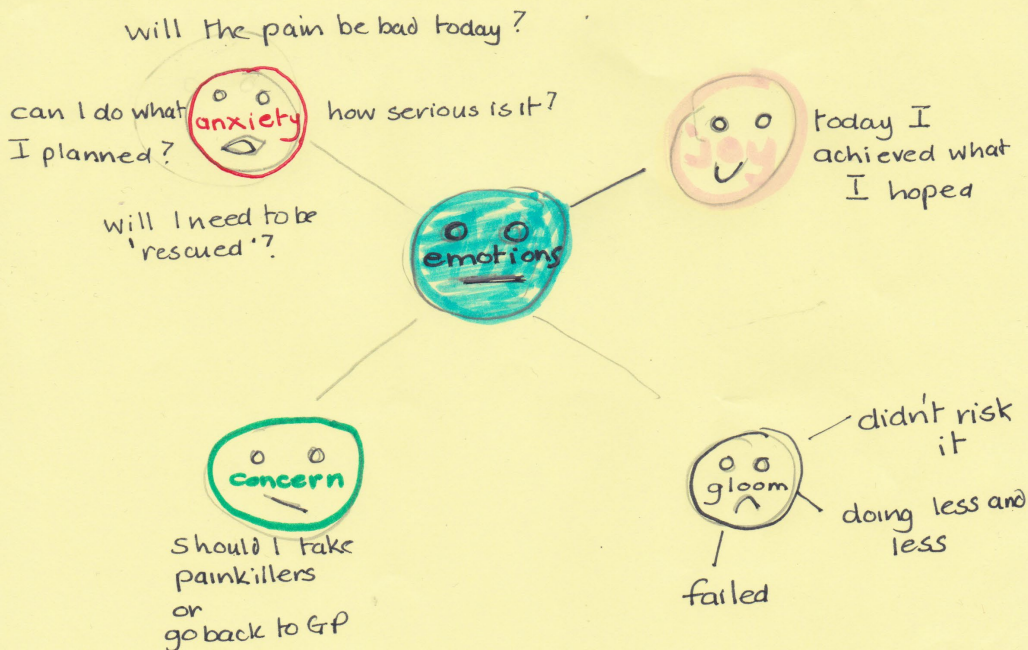 will the pain be bad today?
can I do what
I planned?
anxiety
how serious is it?
will I need to be
'rescued'?
joy
today I
achieved what
I hoped
emotions
concern
should I take
painkillers
or
go back to GP
gloom
didn't risk
it
doing less and
less
failed